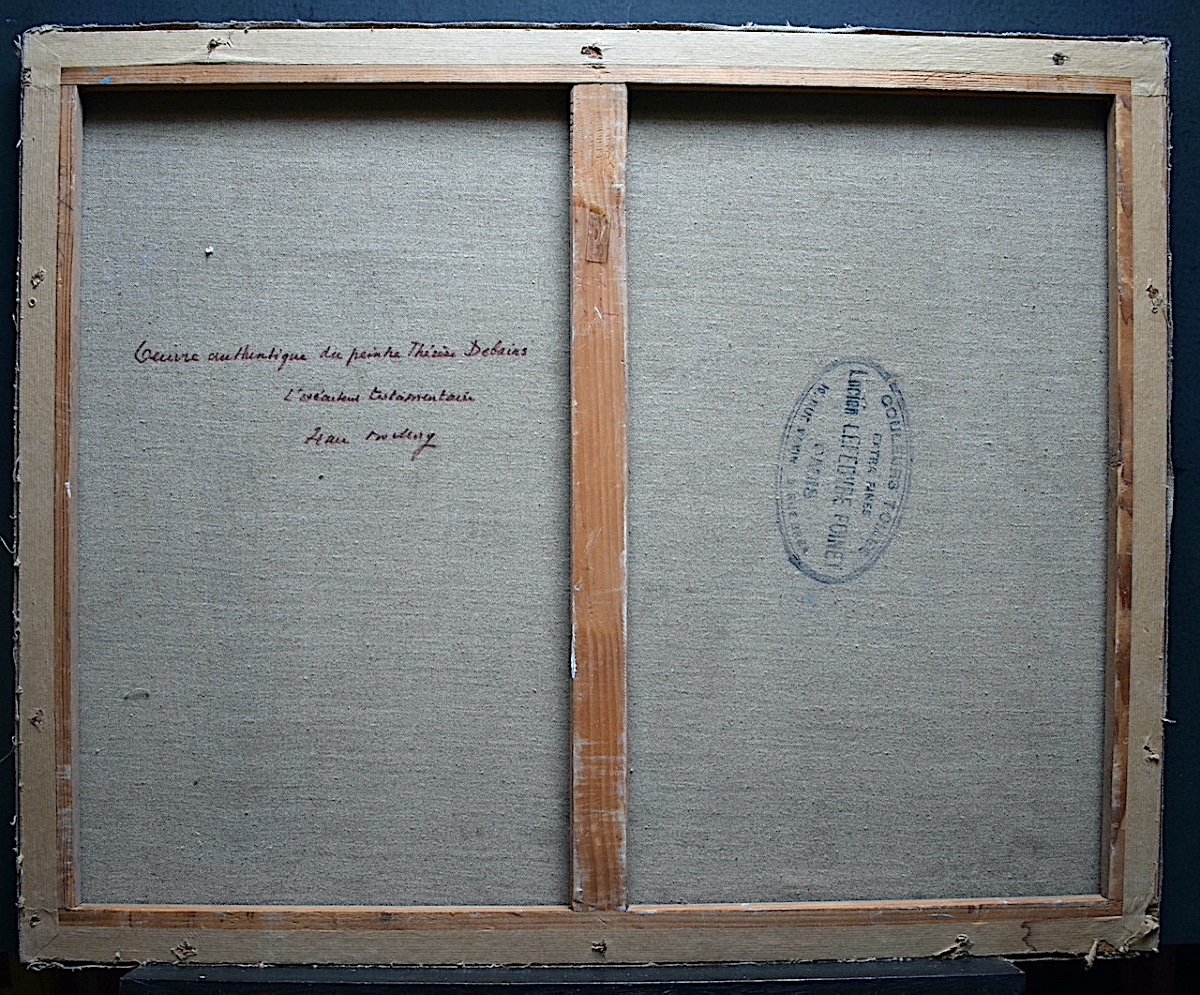 Oeuvre authentique du peintre Thérèse Debains
L'exécuteur testamentaire
Jean
COULEURS TOILES
EXTRA FINES
Lucien LEFEBVRE-FOINET
PARIS